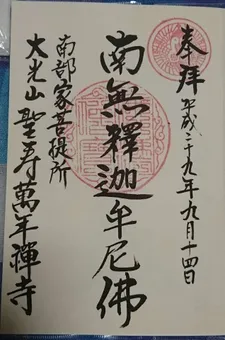 奉拝
平成二十九年九月十四日
南無釋迦牟尼佛
南部家菩提所
大光山聖寿萬年禪寺